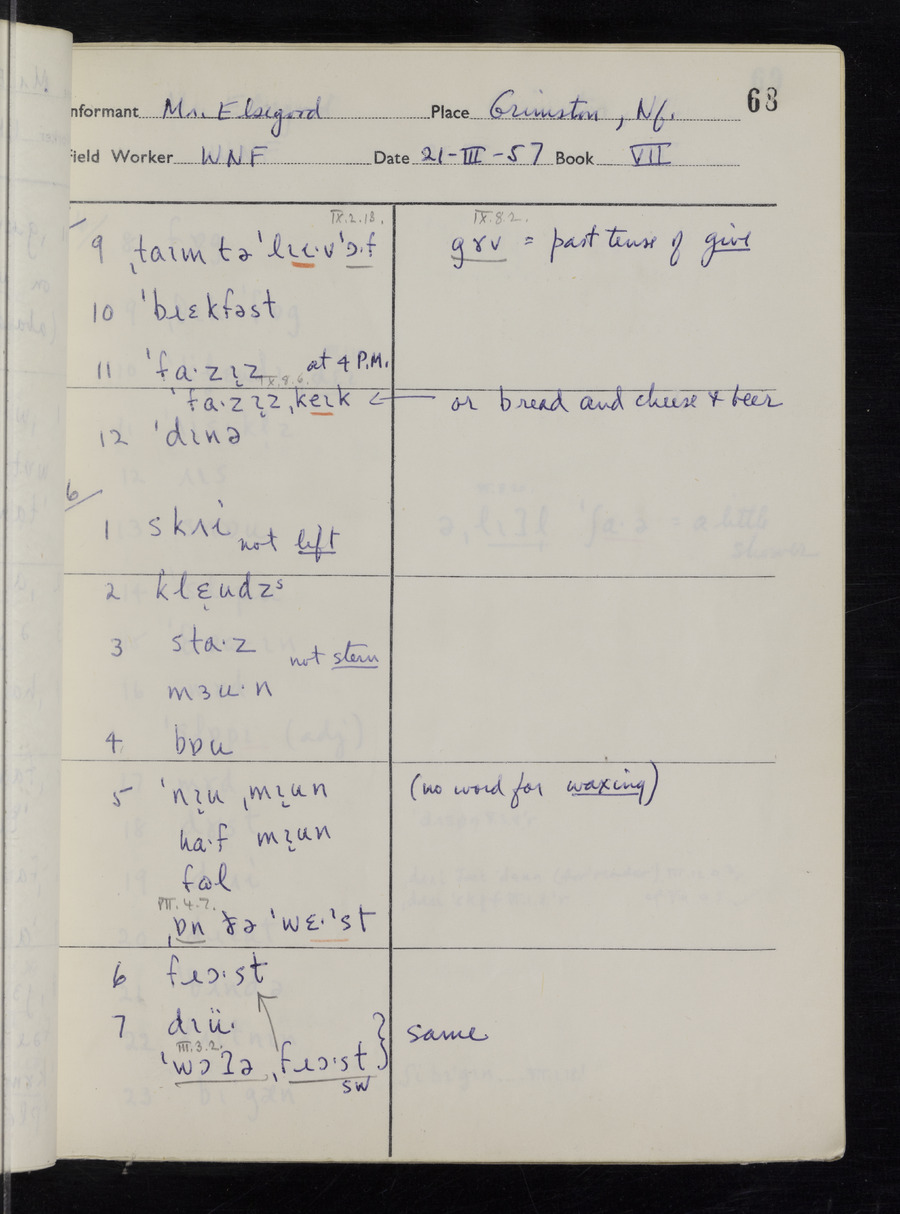 68
Informant Mr. Elsegood Place Grimston, Nf.
Field Worker WNF Date 21-III-57 Book VII
IX.2.18. IX.8.2.
9 ˌtaɪm tə ˈlɪɛ·v ˈɔ·f gɤv = past tense of give
10 ˈbɹɛkfəst
11 ˈfɑ·zɪ̣z at 4 P.M.
ˈfɑ·zɪ̣zˌkeɪk ← or bread and cheese & beer
12 ˈdɪnə
6/
1 skʌi not left
2 klɛ̣udzˢ
3 stɑ·z not stern
mɜu·n
4 bɒu
5 ˈnɪ̣u ˌmɪ̣un (no word for waxing)
hɑ·f mɪ̣un
ful
VII.4.7.
ˌɒn ðə ˈwɛ·ˈst
6 fɹɔ·st
7 dɪü· same
III.3.2.
ˈwɔʔə ˌfɹɔ·st
SW